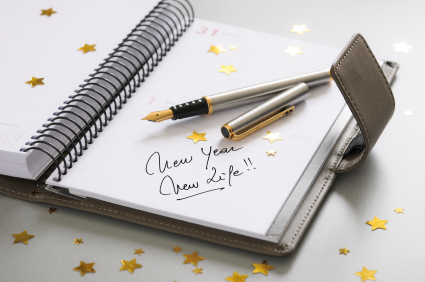 31
1
New Year
New Life!!